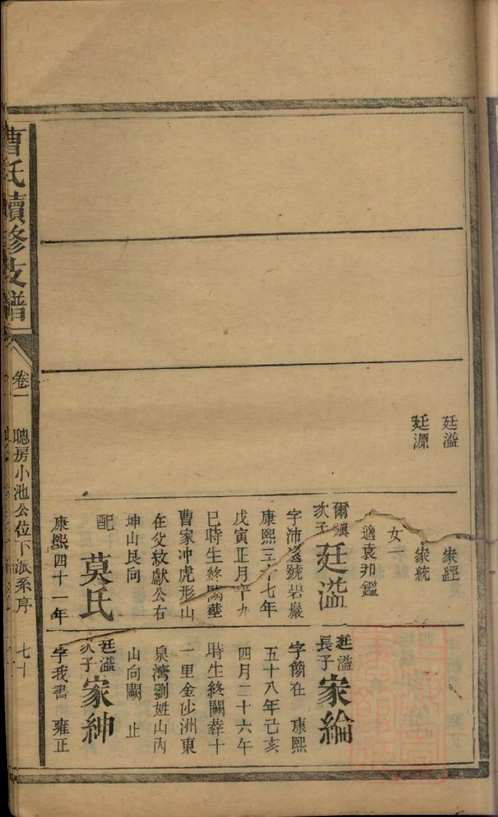 廷溢
廷源
家經
家統
女一
適袁邦鑑
爾順
次子
廷溢
字沛遠號岩巖
康熙三十七年
戊寅正月十九
巳時生終闕葬
曹家冲虎形山
在父敖獻公右
坤山艮向
配
莫氏
康熙四十一年
廷溢
長子
家綸
字簡在 康熙
五十八年己亥
四月二十六午
時生終闕葬十
一里金沙洲東
泉灣劉姓山丙
山向闕 止
廷溢
次子
家紳
字我書 雍正
曹氏續修支譜
卷一
聰房小池公位下派系序
七十